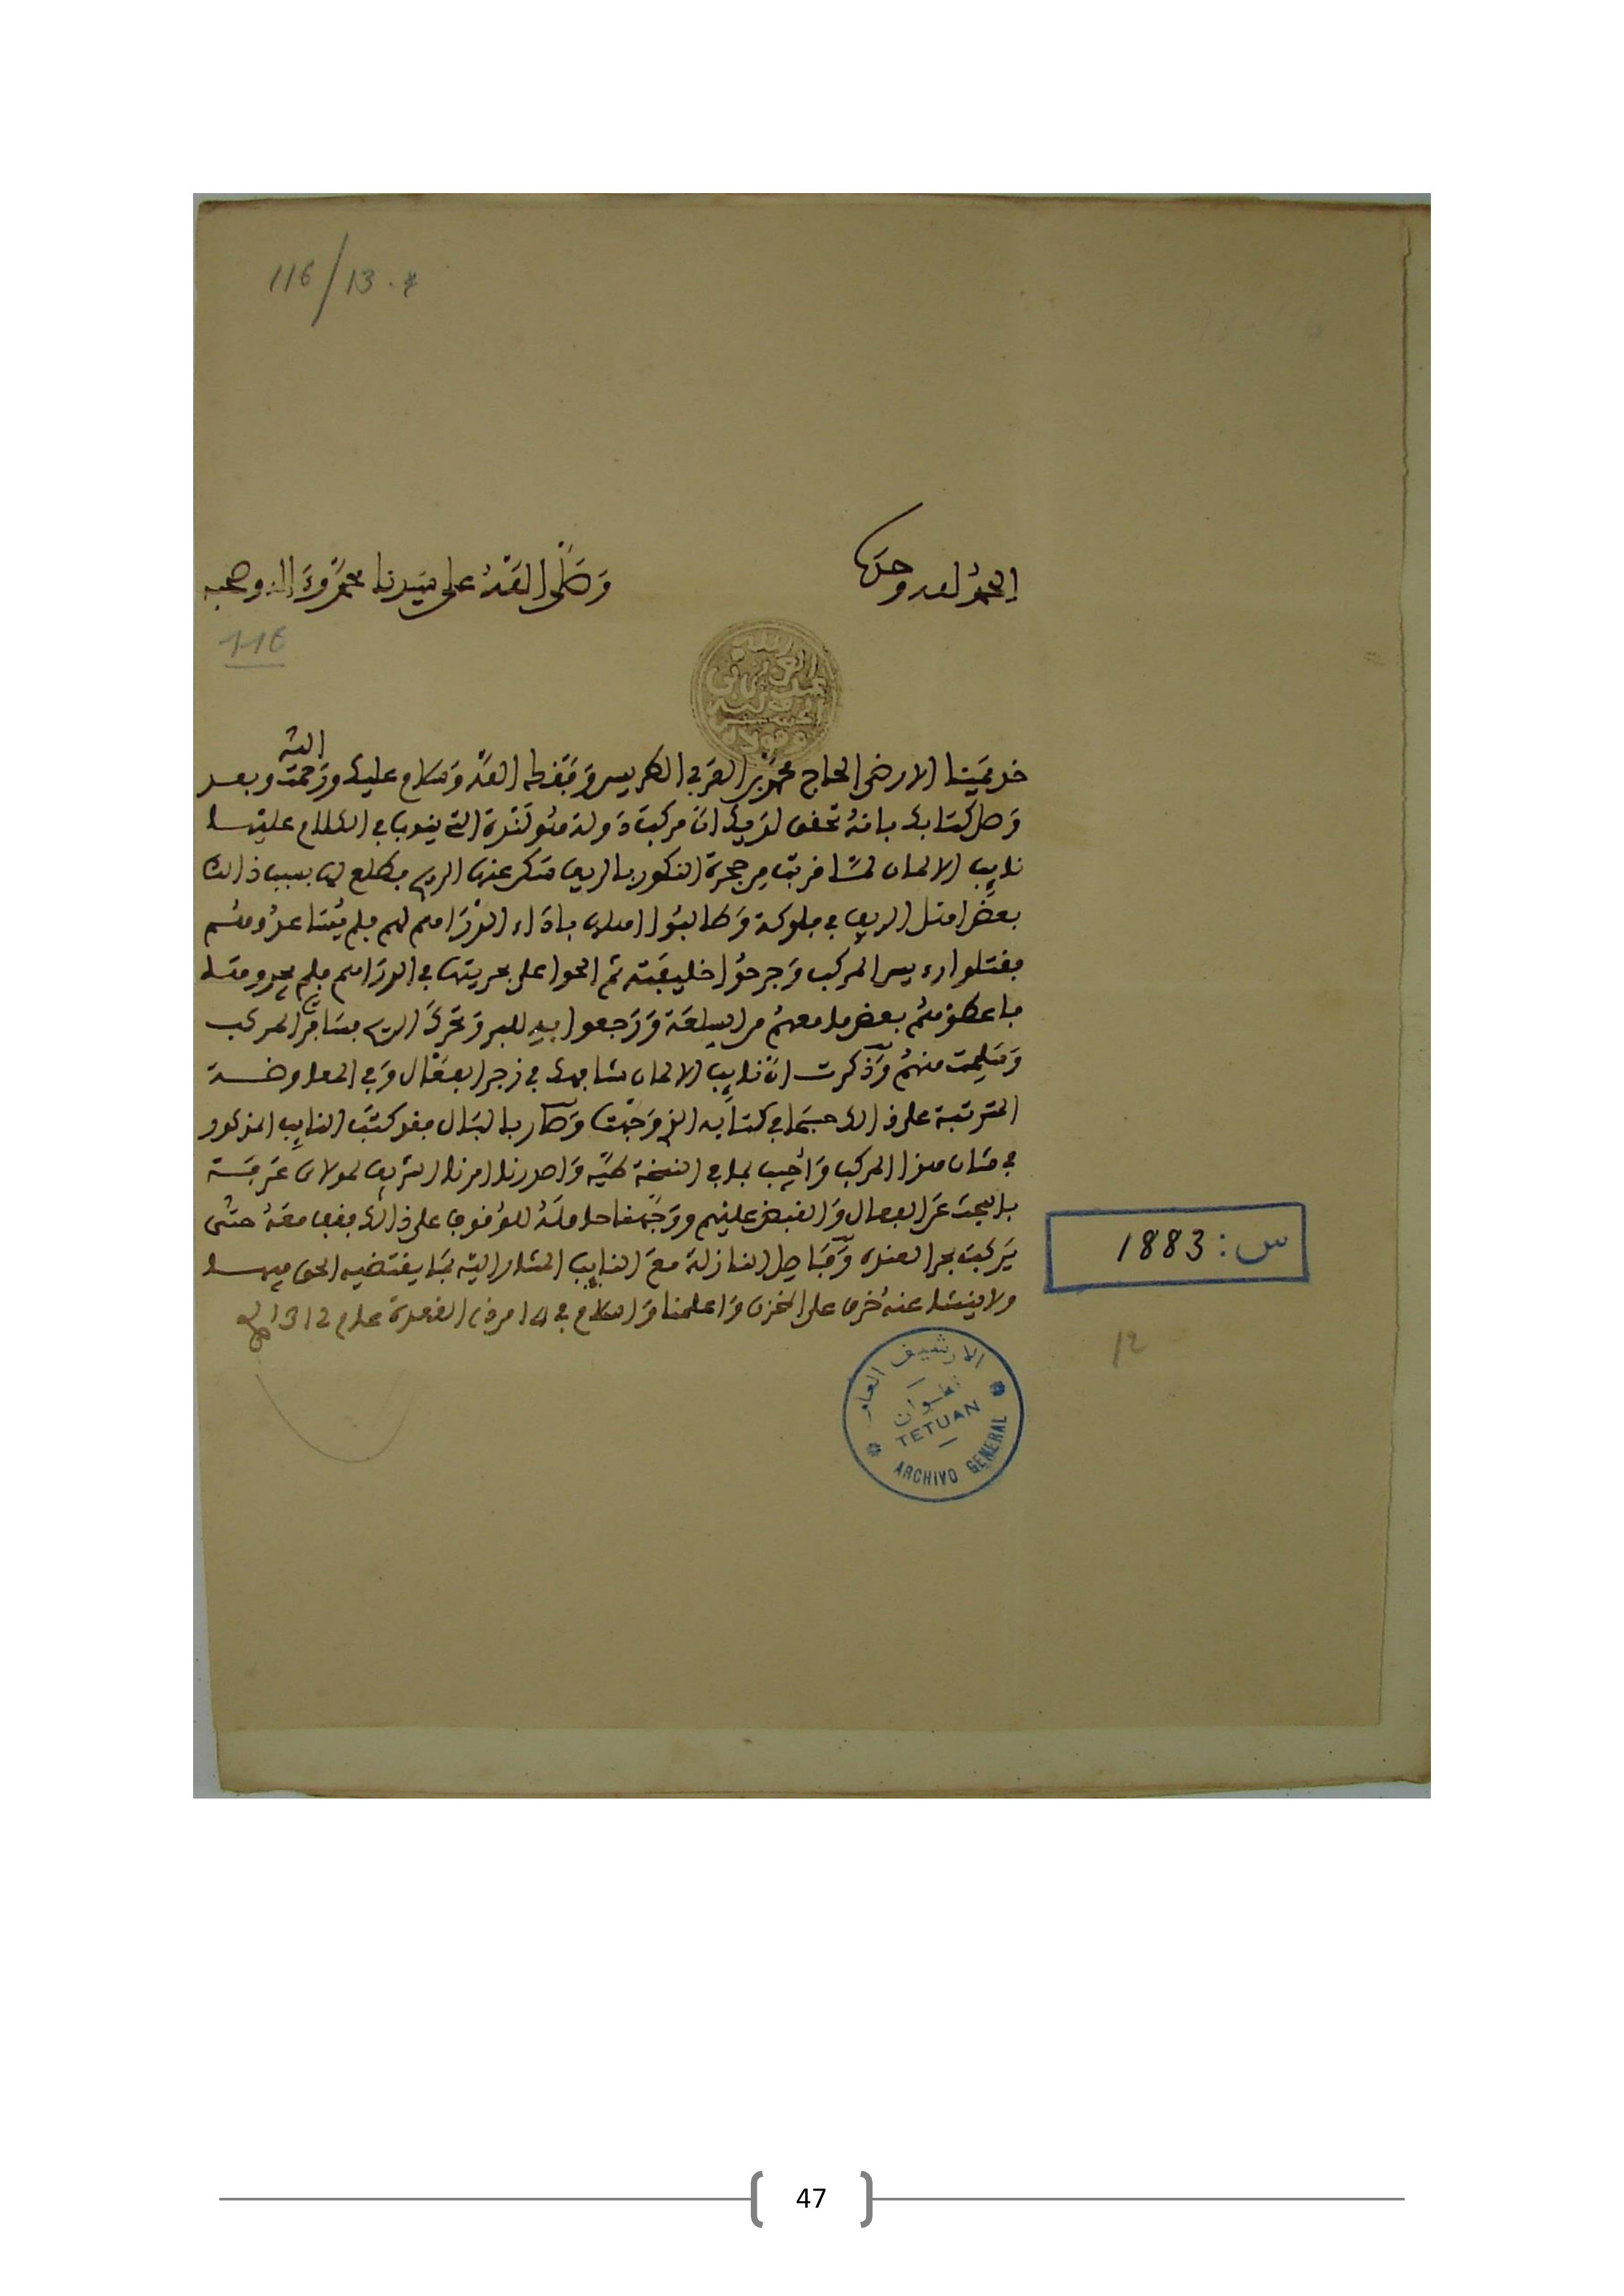 116/13.*
الحمد لله وحده
وصلى الله على سيدنا محمد وءاله وصحبه
116
خديمنا الارضى الحاج محمد بن العربي الطريس وفقك الله وسلام عليك ورحمت الله وبعد
وصل كتابك بانه تحقق لديك ان مركبا دولة هولندة التي ينوب في الكلام عليها
نايب الالمان لما فربت من حجرة النكور بالريف سكن عنها الريح فطلع لها بسبب ذالك
بعض اهل الريف في فلوكة وطالبوا اهلها باداء الدراهم لهم فلم يساعدوهم
فقتلوا رءيس المركب وجرحوا خليفته ثم الحوا على بحريتها في الدراهم فلم يجدوها
فاعطوهم بعض ما معهم من السلعة ورجعوا به للبر وتحرك الريح فسافر المركب
وسلمت منهم وذكرت ان نايب الالمان شافهك في زجر الفعال وفي المعاوضة
المترتبة على ذالك حسبما في كتابه الذي وجهت وصار بالبال فقد كتب النايب المذكور
في شان هذا المركب واجيب بما في النسخة طيه واصدرنا امرنا الشريف لمولاي عرفة
بالبحث عن الفعال والقبض عليهم ووجهنا حاملة للوقوف على ذالك فقف معه حتى
يركب بحر العندة وفاصل النازلة مع النايب المشار اليه بما يقتضيه الحق فيها
ولا ينشا عنه خرق على المخزن واعلمنا والسلام في 14 من ذي القعدة عام 1312
س: 1883
12
الارشيف العام
تطوان
TETUAN
ARCHIVO GENERAL
47